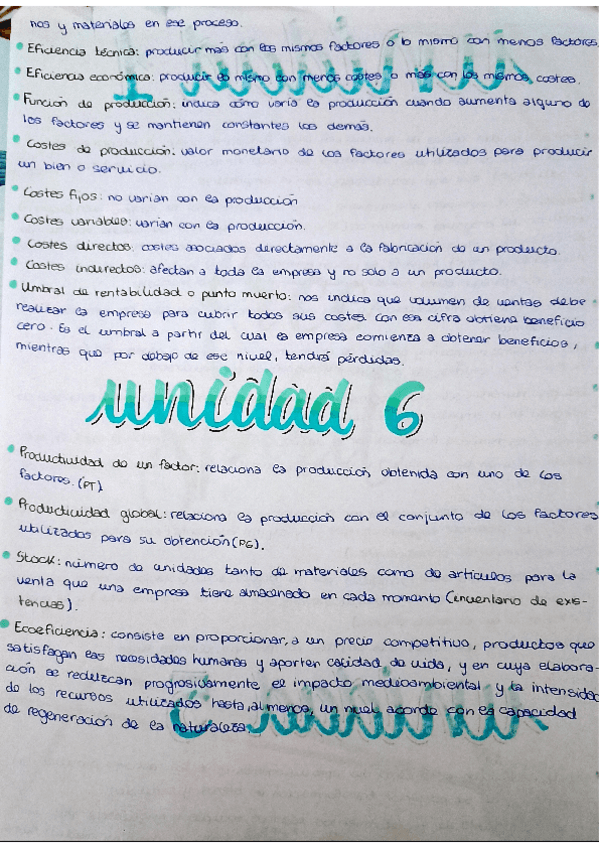 nos y materiales en ese proceso.
Eficiencia técnica: producir más con los mismos factores o lo mismo con menos factores.
Eficiencia económica: producir lo mismo con menos costes o más con los mismos costes.
Función de producción: indica cómo varía la producción cuando aumenta alguno de
los factores y se mantienen constantes los demás.
Costes de producción: valor monetario de los factores utilizados para producir
un bien o servicio.
Costes fijos: no varían con la producción
Costes variables: varían con la producción.
Costes directos: costes asociados directamente a la fabricación de un producto.
Costes indirectos: afectan a toda la empresa y no solo a un producto.
Umbral de rentabilidad o punto muerto: nos indica que volumen de ventas debe
realizar la empresa para cubrir todos sus costes con esa cifra obtiene beneficio
cero. Es el umbral a partir del cual la empresa comienza a obtener beneficios,
mientras que por debajo de ese nivel, tendrá pérdidas.
unidad 6
Productividad de un factor: relaciona la producción obtenida con uno de los
factores. (PT)
Productividad global: relaciona la producción con el conjunto de los factores
utilizados para su obtención (PG).
Stock: número de unidades tanto de materiales como de artículos para la
venta que una empresa tiene almacenado en cada momento (inventario de exis-
tencias).
Ecoeficiencia: consiste en proporcionar, a un precio competitivo, productos que
satisfagan las necesidades humanas y aporten calidad de vida, y en cuya elabora-
ción se reduzcan progresivamente el impacto medioambiental y la intensidad
de los recursos utilizados hasta, al menos, un nivel acorde con la capacidad
de regeneración de la naturaleza.